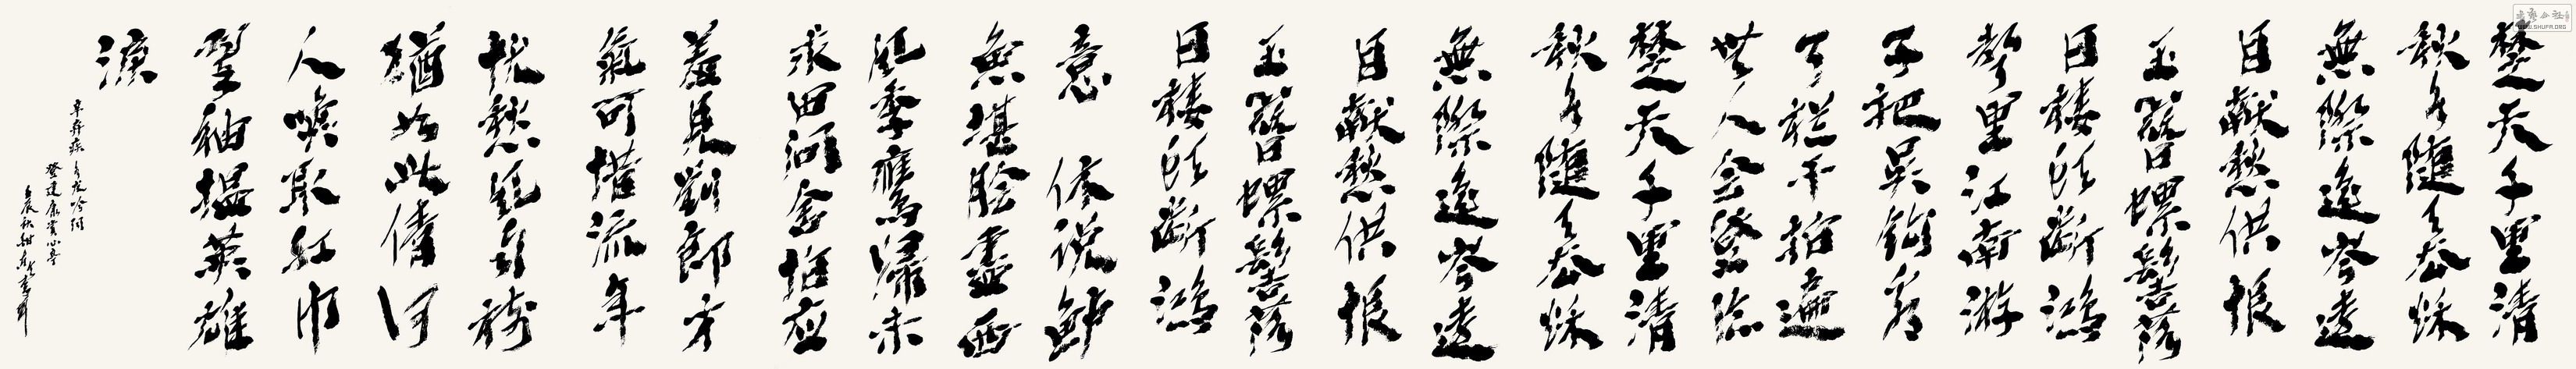 楚天千里清
秋水隨天去秋
無際遥岑遠
目獻愁供恨
玉簪螺髻落
日樓頭斷鴻
聲里江南游
子把吳鉤看
了栏干拍遍
無人會登臨
楚天千里清
秋水隨天去秋
無際遥岑遠
目獻愁供恨
玉簪螺髻落
日樓頭斷鴻
意 休说鲈
魚堪脍盡西
風季鷹歸未
求田問舍怕應
羞見劉郎才
氣可惜流年
忧愁風雨樹
猶如此倩何
人喚取紅巾
翠袖揾英雄
淚
辛弃疾水龙吟词
登建康赏心亭
WWW.SHUFA.ORG